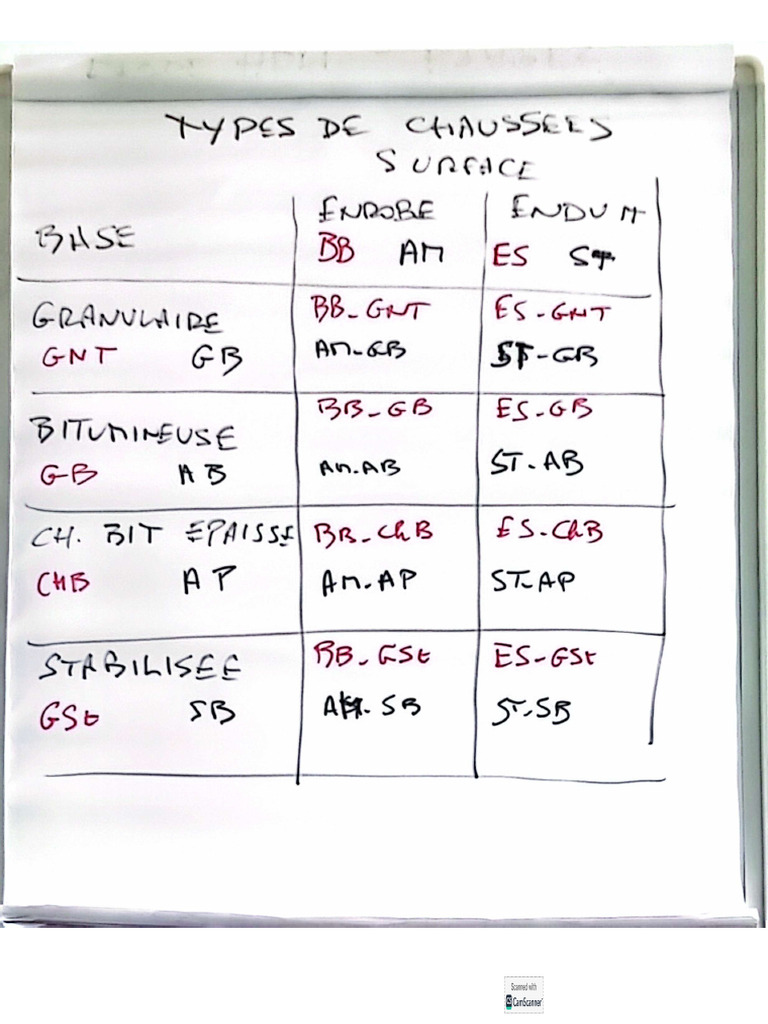 TYPES DE CHAUSSEES
SURFACE
BASE
ENROBE
BB AM
ENDUIT
ES ST
GRANULAIRE
GNT GB
BB-GNT
AM-GB
ES-GNT
ST-GB
BITUMINEUSE
GB AB
BB-GB
AM-AB
ES-GB
ST-AB
CH. BIT EPAISSE
CHB AP
BB-ChB
AM-AP
ES-ChB
ST-AP
STABILISEE
GSt SB
BB-GSt
AM-SB
ES-GSt
ST-SB
Scanned with
CS CamScanner